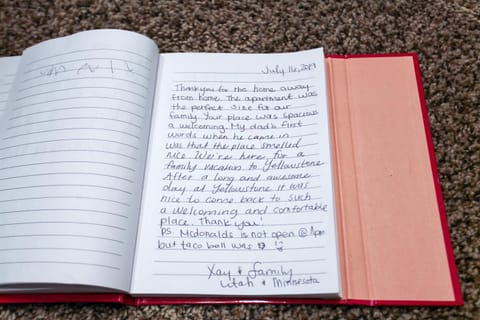 July 16, 2021
Thank you for the home away
from home. The apartment was
the perfect size for our
family. Your place was spacious
& welcoming. My dad's first
words when he came in
was that the place smelled
nice. We're here for a
family vacation to Yellowstone
After a long and awesome
day at Yellowstone it was
nice to come back to such
a welcoming and comfortable
place. Thank you!
PS. Mcdonalds is not open @
but taco bell was
Xay & family
Utah & Minnesota